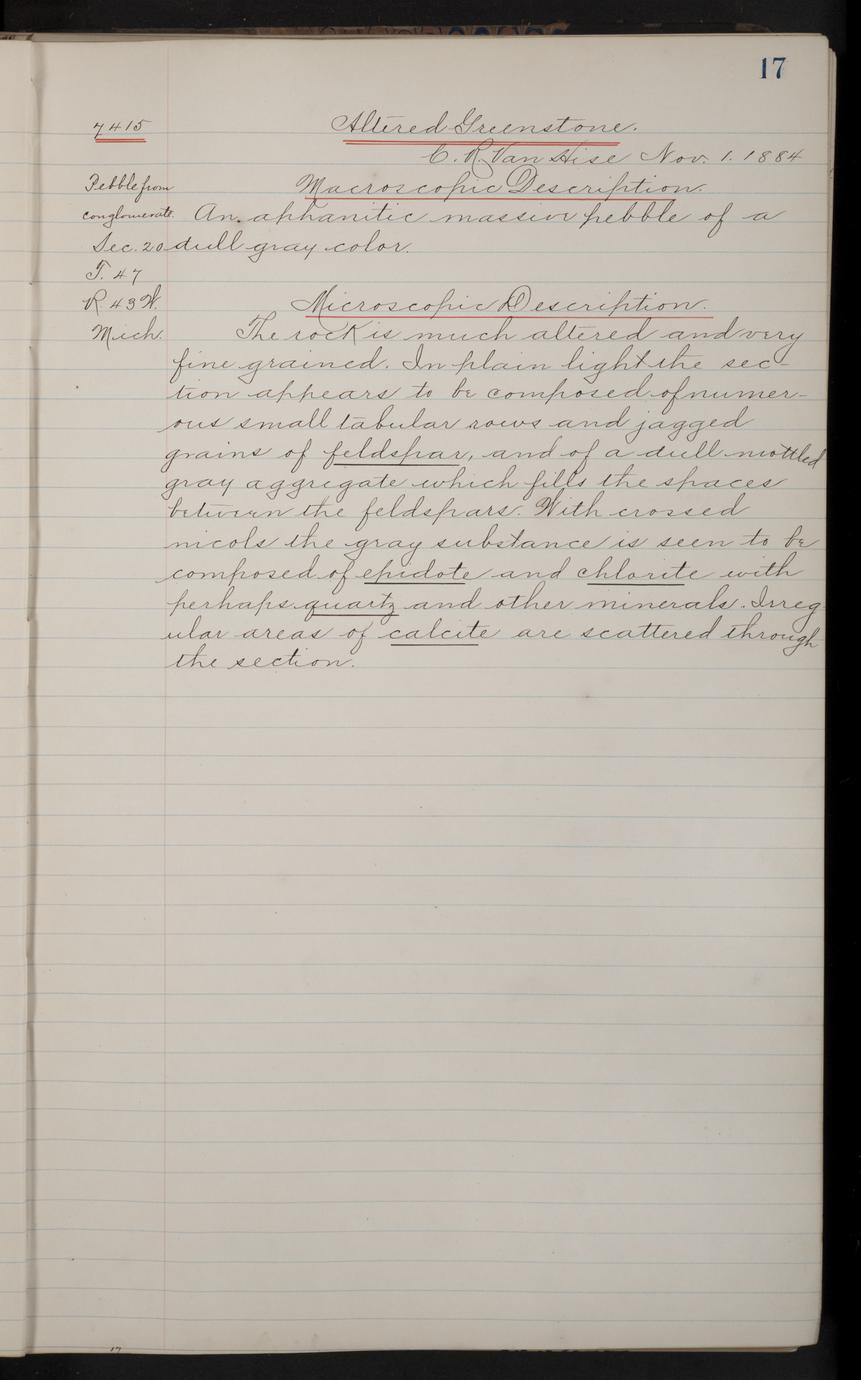 17
7415
Altered Greenstone.
C. R. Van Hise Nov. 1. 1884
Pebble from
conglomerate.
Sec. 20
T. 47
R. 43 W.
Mich.
Macroscopic Description.
An aphanitic massive pebble of a
dull gray color.
Microscopic Description.
The rock is much altered and very
fine grained. In plain light the sec-
tion appears to be composed of numer-
ous small tabular rows and jagged
grains of feldspar, and of a dull mottled
gray aggregate which fills the spaces
between the feldspars. With crossed
nicols the gray substance is seen to be
composed of epidote and chlorite with
perhaps quartz and other minerals. Irreg
ular areas of calcite are scattered through
the section.